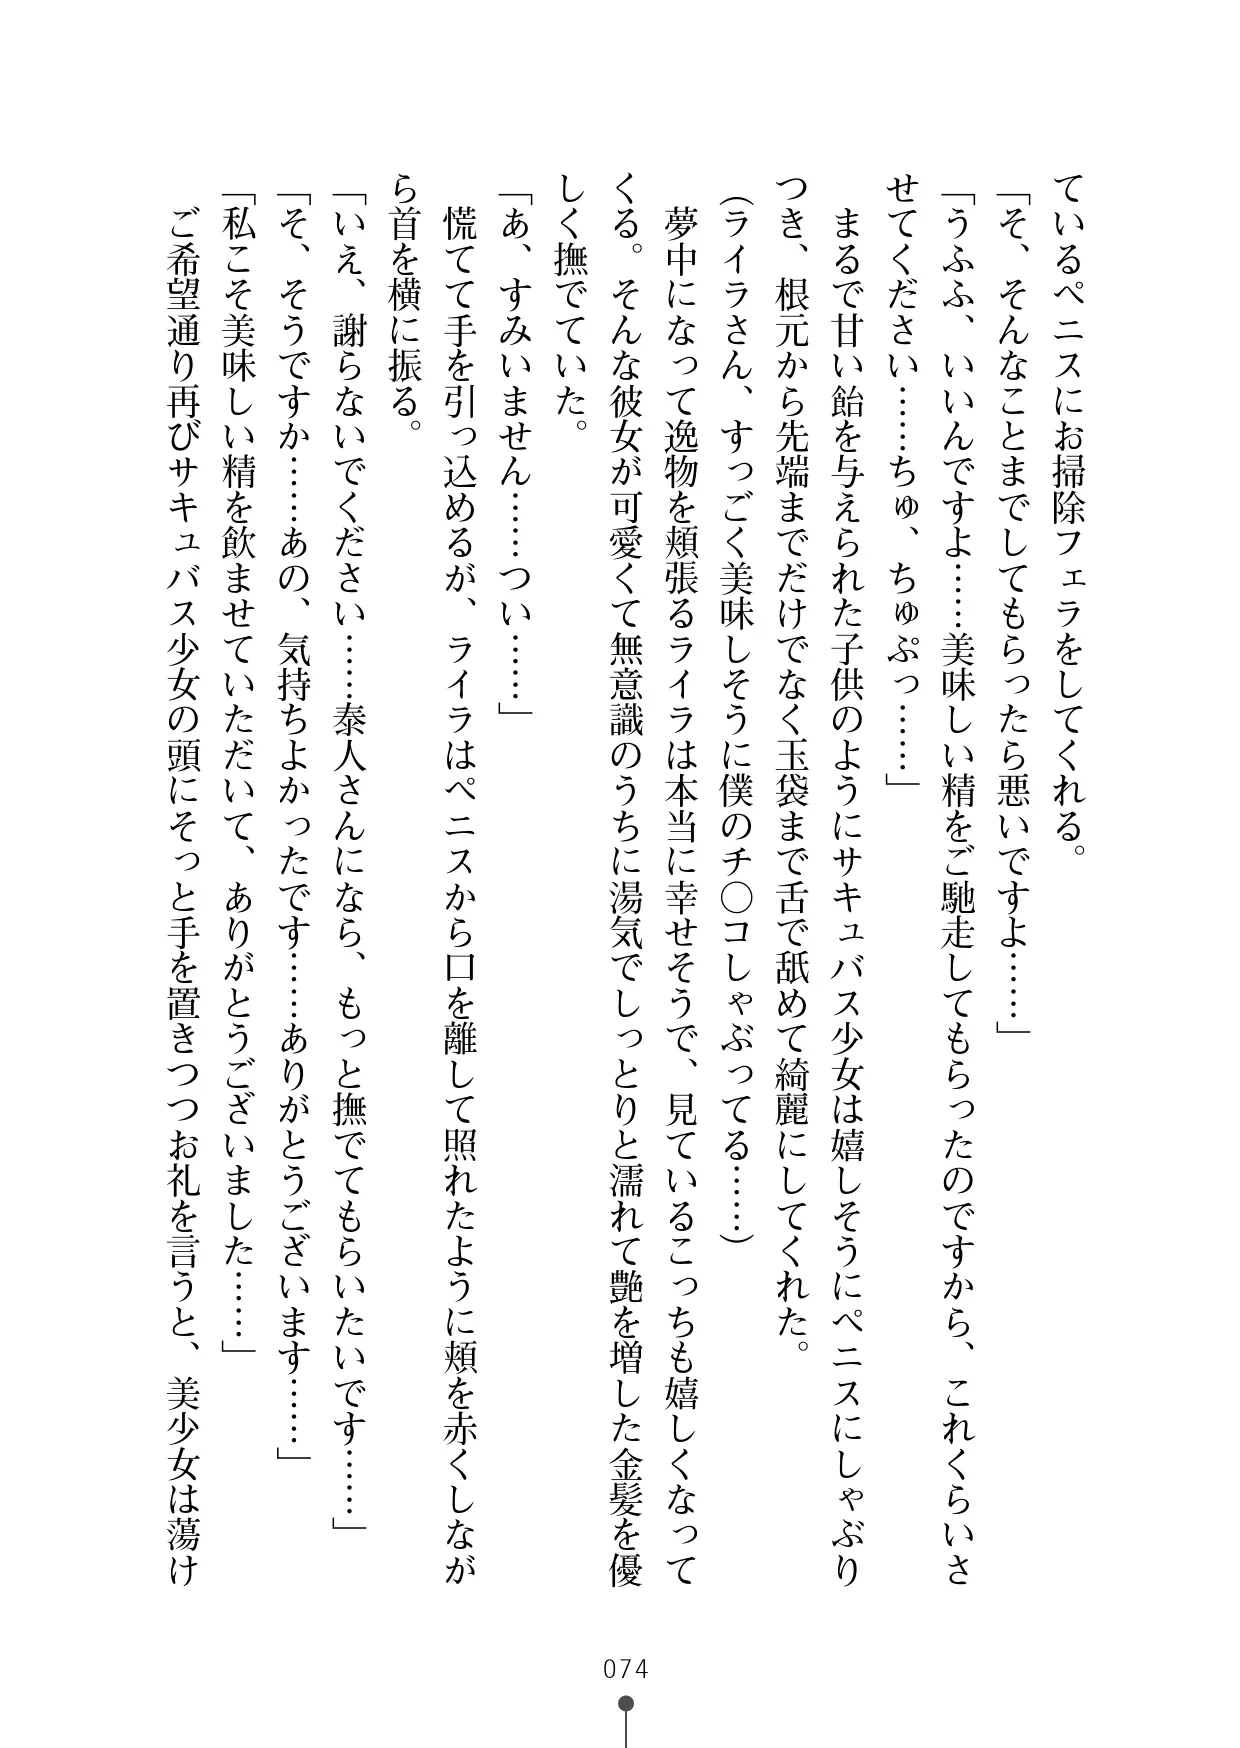 ているペニスにお掃除フェラをしてくれる。
「そ、そんなことまでしてもらったら悪いですよ……」
「うふふ、いいんですよ……美味しい精をご馳走してもらったのですから、これくらいさ
せてください……ちゅ、ちゅぷっ……」
　まるで甘い飴を与えられた子供のようにサキュバス少女は嬉しそうにペニスにしゃぶり
つき、根元から先端までだけでなく玉袋まで舌で舐めて綺麗にしてくれた。
（ライラさん、すっごく美味しそうに僕のチ〇コしゃぶってる……）
　夢中になって逸物を頬張るライラは本当に幸せそうで、見ているこっちも嬉しくなって
くる。そんな彼女が可愛くて無意識のうちに湯気でしっとりと濡れて艶を増した金髪を優
しく撫でていた。
「あ、すみいません……つい……」
　慌てて手を引っ込めるが、ライラはペニスから口を離して照れたように頬を赤くしなが
ら首を横に振る。
「いえ、謝らないでください……泰人さんになら、もっと撫でてもらいたいです……」
「そ、そうですか……あの、気持ちよかったです……ありがとうございます……」
「私こそ美味しい精を飲ませていただいて、ありがとうございました……」
　ご希望通り再びサキュバス少女の頭にそっと手を置きつつお礼を言うと、美少女は蕩け
074